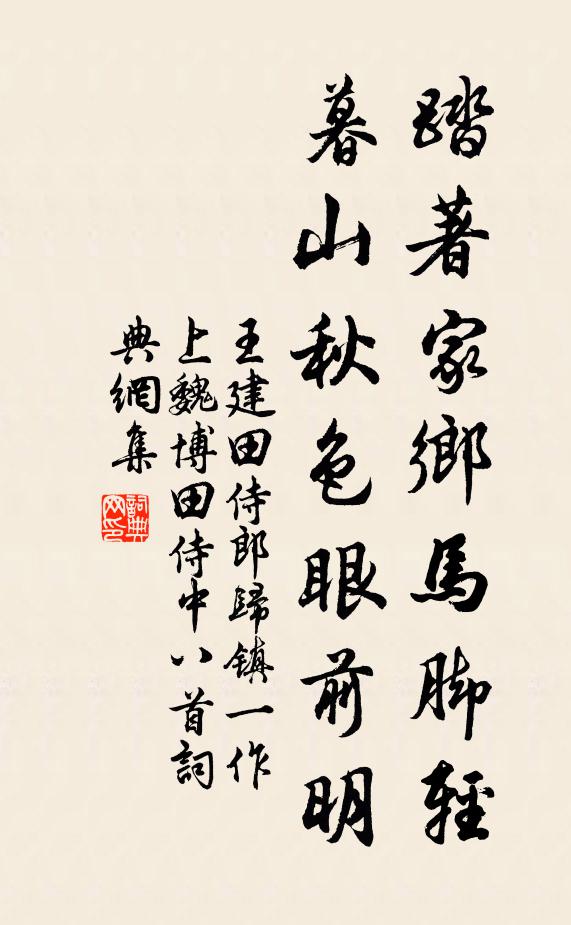 踏著家鄉馬脚輕
暮山秋色眼前明
王建田侍郎歸鎮一作
上魏博田侍中八首詞
典網集
詞典网印